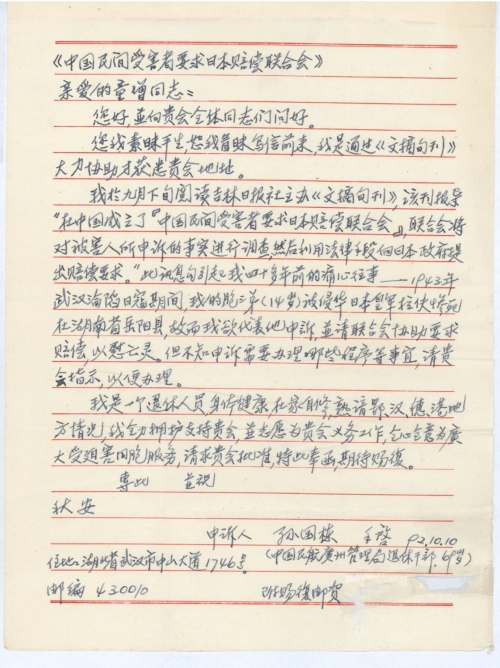 《中国民间受害者要求日本赔偿联合会》
亲爱的童增同志：
您好，並向贵会全体同志们问好。
您我素昧平生，恕我冒昧写信前来，我是通过《文摘旬刊》
大力协助才获悉贵会地址。
我於九月下旬阅读吉林日报社主办《文摘旬刊》，该刊报导
"在中国成立了『中国民间受害者要求日本赔偿联合会』，联合会将
对被害人所申诉的事实进行调查然后利用法律手段向日本政府提
出赔偿要求。"此讯息勾引起我四十多年前的痛心往事——1943年
武汉沦陷日寇期间，我的胞三弟(14岁)被侵华日本皇军拉伕惨死
在湖南省岳阳县，故而我欲代表他申诉，並请联合会协助要求
赔偿，以慰亡灵。但不知申诉需要办理哪些程序等事宜，请贵
会指示，以便办理。
我是一个退休人员，身体健康，在家自修，熟谙鄂汉
方情况，我全力拥护支持贵会，並志愿为贵会义务工作，全心全意为广
大受迫害同胞服务，请求贵会批准，特此奉函，期待赐復。
专此 並祝
秋安
申诉人 孙国栋 手啓 92.10.10
住地：湖北省武汉市中山大道1746号 (中国民航广州管理局退休干部，69岁)
邮编 430010 赐復邮资